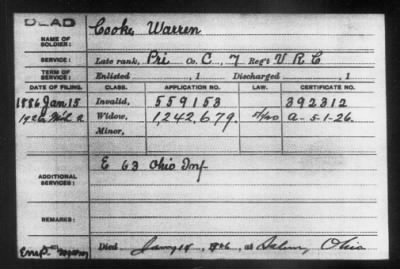 DEAD
NAME OF SOLDIER: Cooke, Warren
SERVICE: Late rank, Pri Co. C, 7 Reg't V R C
TERM OF SERVICE: Enlisted , 1 Discharged , 1
DATE OF FILING. CLASS. APPLICATION NO. LAW. CERTIFICATE NO.
1886 Jan 15 Invalid, 559153 392312
1926 Widow, 1,242,679. A-5-1-26.
Minor,
ADDITIONAL SERVICES: E 63 Ohio Inf
REMARKS:
Died , 1926, at Salem, Ohio